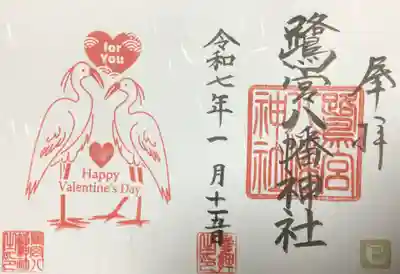 奉拝
鷺宮八幡神社
鷺宮
神社
令和七年一月十五日
for
You
Happy
Valentine's Day